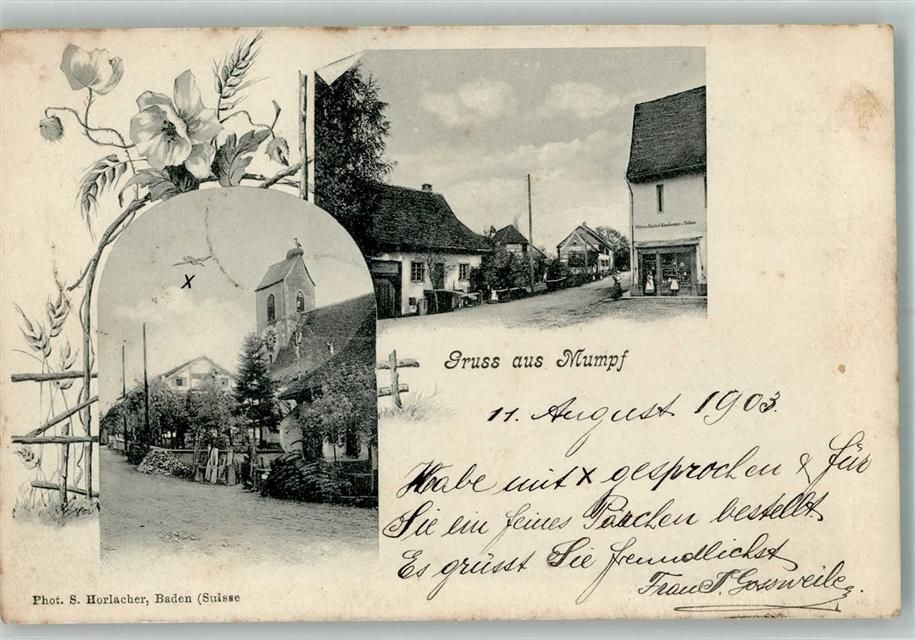 Gruss aus Mumpf
11. August 1903.
Habe mit x gesprochen & für
Sie ein feines Pärchen bestellt.
Es grüsst Sie freundlichst
Frau T. Gossweiler.
x
Phot. S. Horlacher, Baden (Suisse